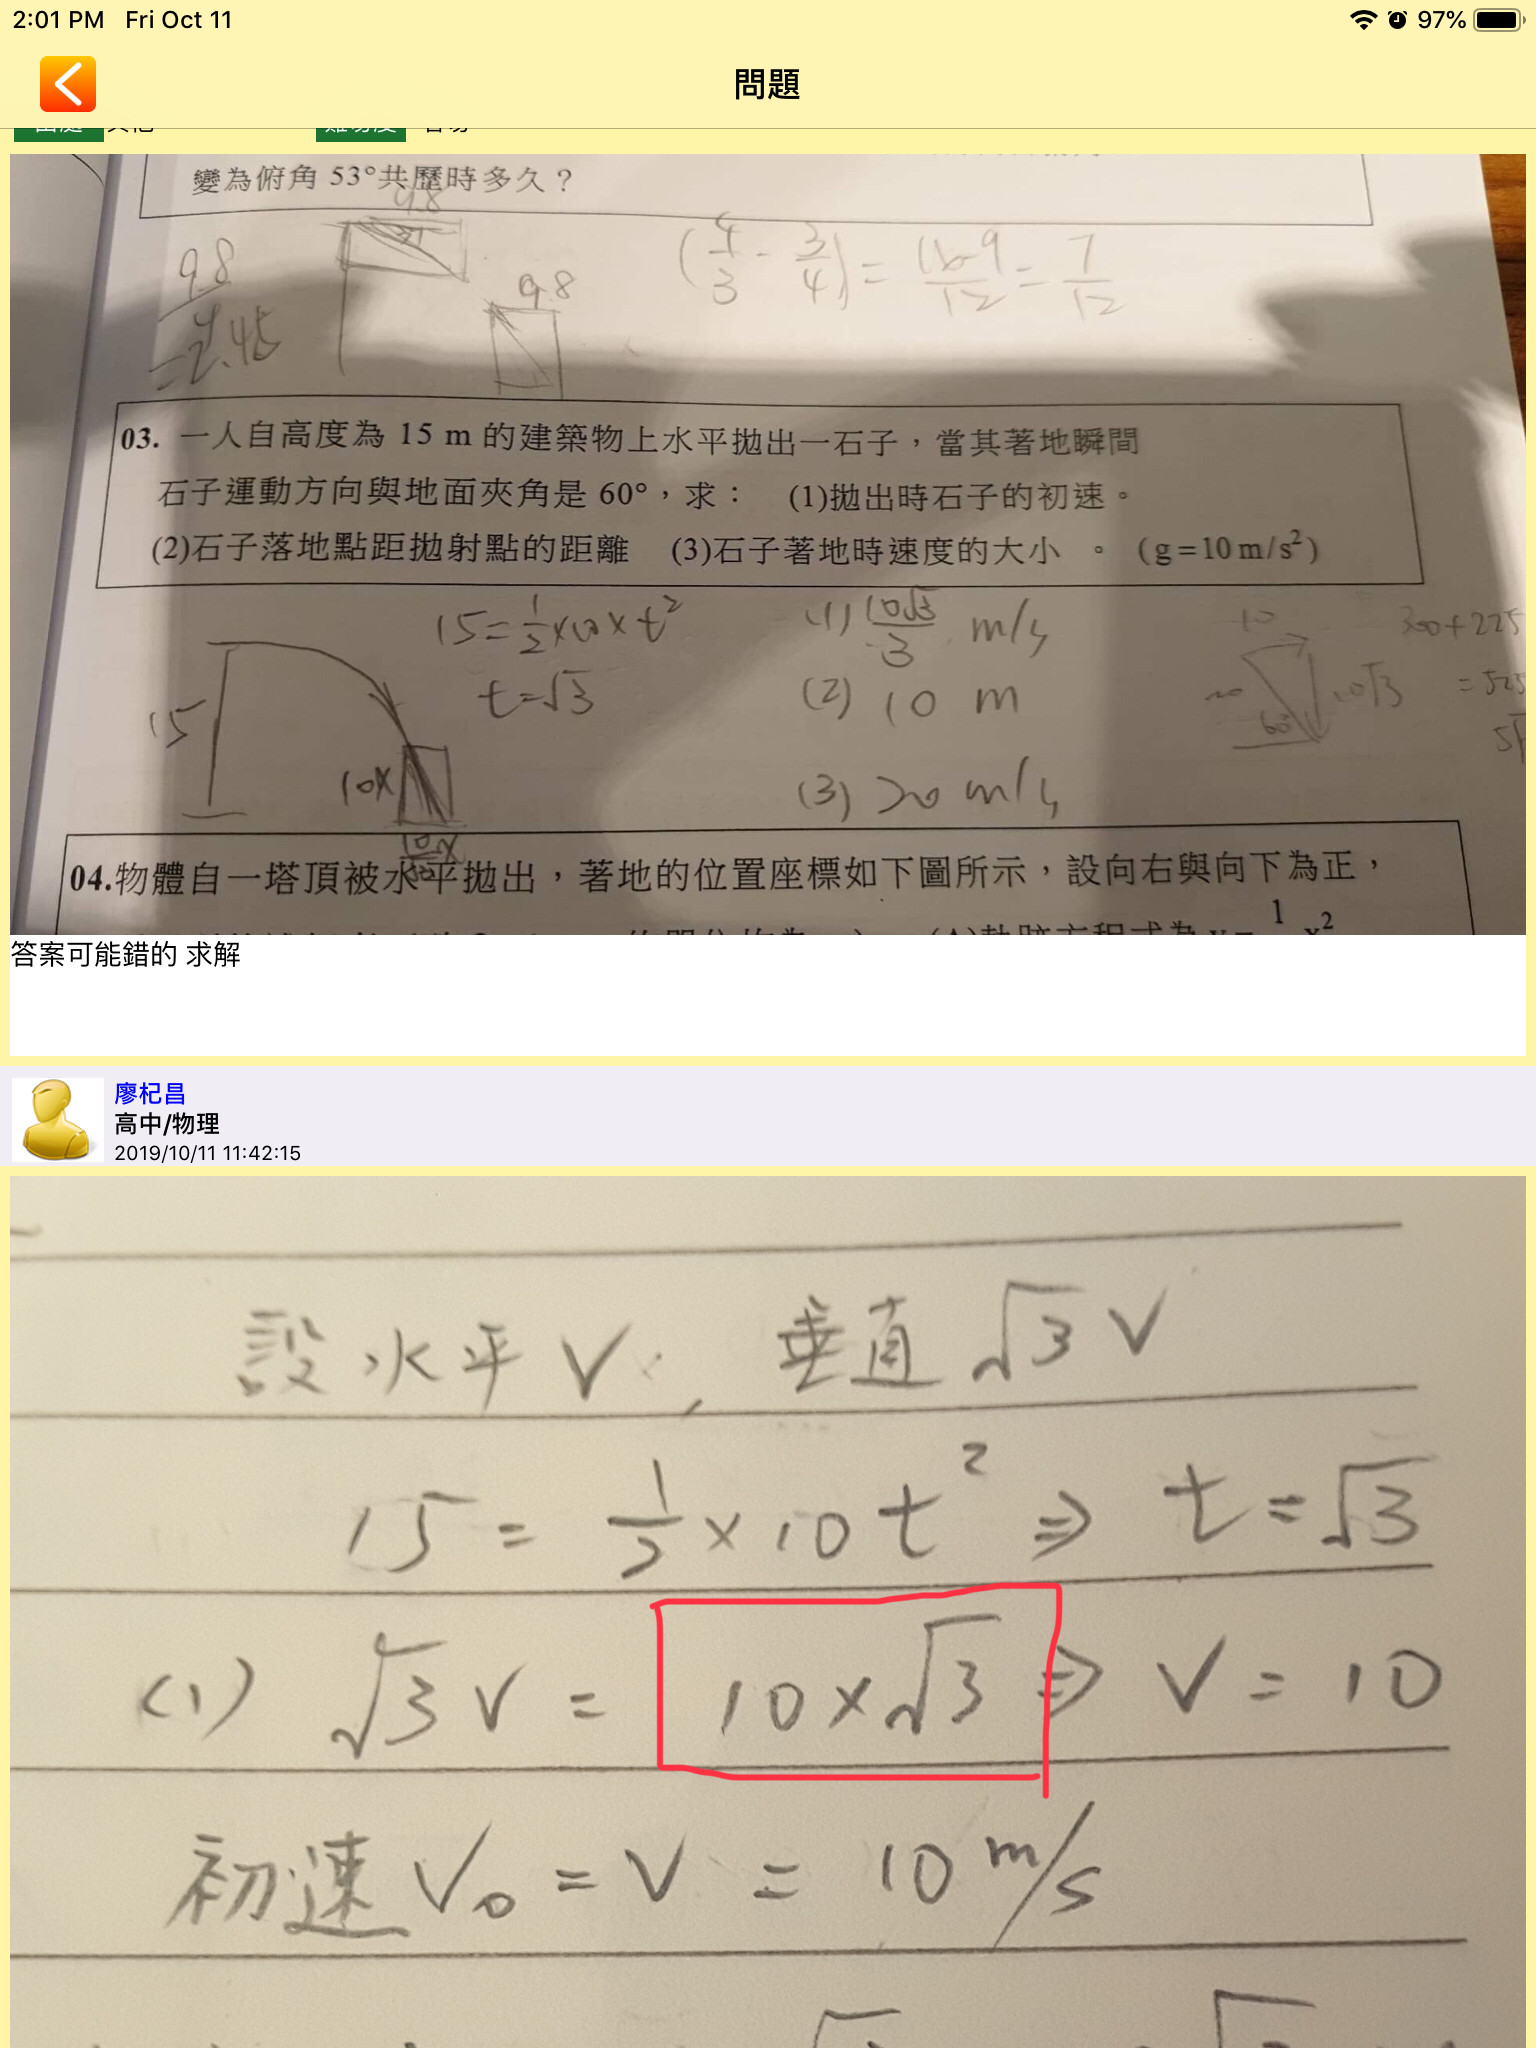 2:01 PM Fri Oct 11 97%
問題
變為俯角 53°共歷時多久？
9.8
9.8
9.8
= 2.45
(4/3 - 3/4) = 16-9/12 = 7/12
03. 一人自高度為 15 m 的建築物上水平拋出一石子，當其著地瞬間
石子運動方向與地面夾角是 60°，求： (1)拋出時石子的初速。
(2)石子落地點距拋射點的距離 (3)石子著地時速度的大小 。 (g=10 m/s²)
15=1/2×10×t²
t=√3
15
10x
(1) 10√3/3 m/s
(2) 10 m
(3) 20 m/s
10
10√3
60°
300+225
=525
04.物體自一塔頂被水平拋出，著地的位置座標如下圖所示，設向右與向下為正，
答案可能錯的 求解
廖杞昌
高中/物理
2019/10/11 11:42:15
設水平 V , 垂直 √3 V
15 = 1/2 × 10 t² ⇒ t = √3
(1) √3 V = 10×√3 ⇒ V = 10
初速 V₀ = V = 10 m/s